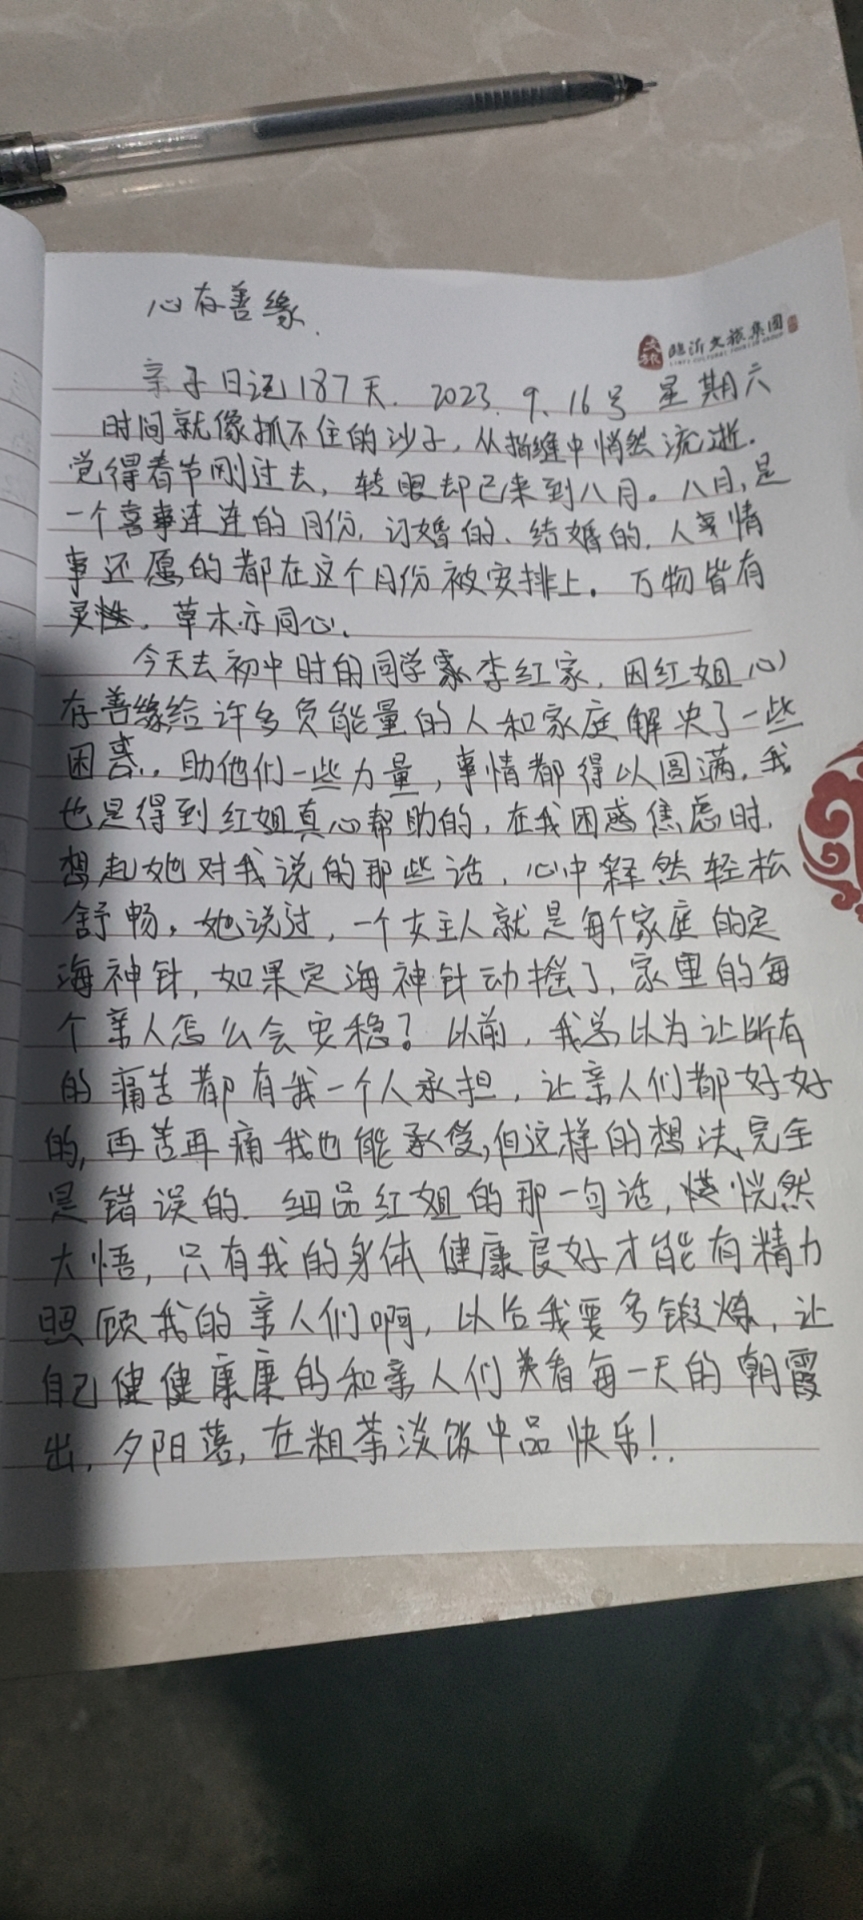 心存善缘.
临沂文旅集团
LINYI CULTURAL TOURISM GROUP
亲子日记187天. 2023. 9. 16号 星期六
时间就像抓不住的沙子，从指缝中悄然流逝.
觉得春节刚过去，转眼却已来到八月。八月，是
一个喜事连连的月份，订婚的、结婚的，人事情
事还愿的都在这个月份被安排上。万物皆有
灵性，草木亦同心.
今天去初中时的同学李红家，因红姐心
存善缘给许多负能量的人和家庭解决了一些
困惑，助他们一些力量，事情都得以圆满。我
也是得到红姐真心帮助的，在我困惑焦虑时，
想起她对我说的那些话，心中释然轻松
舒畅。她说过，一个女主人就是每个家庭的定
海神针，如果定海神针动摇了，家里的每
个亲人怎么会安稳？以前，我总以为让所有
的痛苦都有我一个人承担，让亲人们都好好
的，再苦再痛我也能承受，但这样的想法完全
是错误的. 细品红姐的那一句话，恍然
大悟，只有我的身体健康良好才能有精力
照顾我的亲人们啊，以后我要多锻炼，让
自己健健康康的和亲人们美看每一天的朝霞
出，夕阳落，在粗茶淡饭中品快乐！.